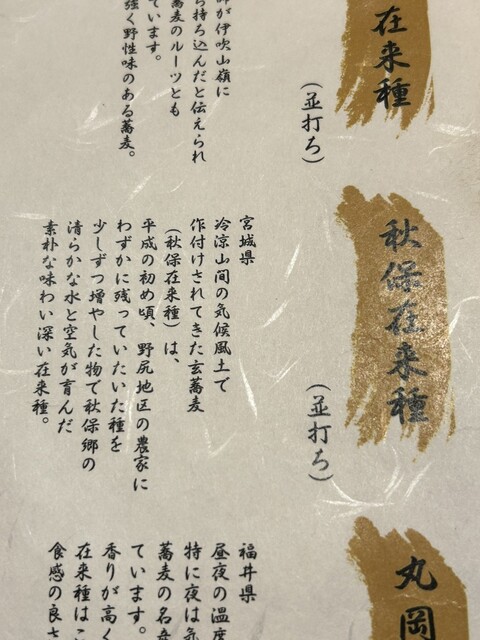 在来種
(並打ち)
師が伊吹山嶺に
ら持ち込んだと伝えられ
蕎麦のルーツとも
ています。
強く野性味のある蕎麦。
秋保在来種
(並打ち)
宮城県
冷涼山間の気候風土で
作付けされてきた玄蕎麦
(秋保在来種)は、
平成の初め頃、野尻地区の農家に
わずかに残っていたいた種を
少しずつ増やした物で秋保郷の
清らかな水と空気が育んだ
素朴な味わい深い在来種。
丸岡
福井県
昼夜の温度
特に夜は気
蕎麦の名産
ています。
香りが高く
在来種はこ
食感の良さ